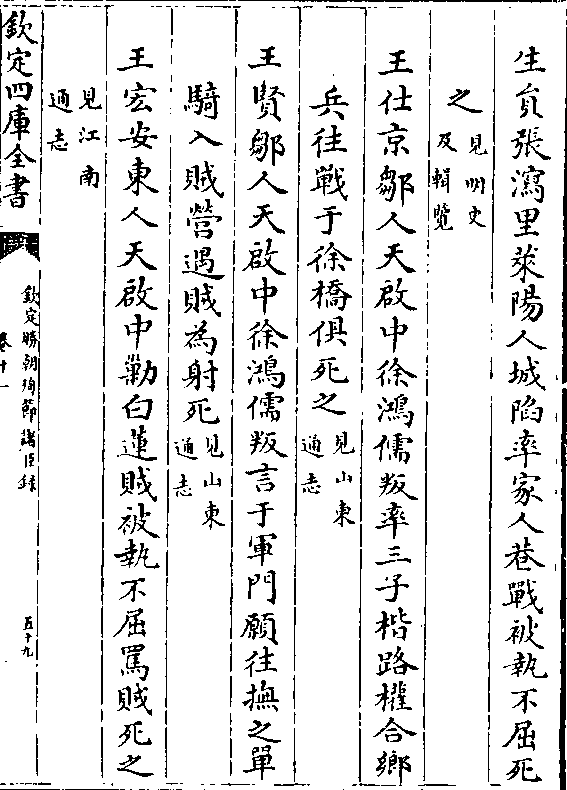 生員張瀉里萊陽人城陷率家人巷戰被執不屈死
之見明史
及輯覽
王仕京鄒人天啟中徐鴻儒叛率三子楷路櫂合鄉
兵往戰于徐橋俱死之見山東
通志
王賢鄒人天啟中徐鴻儒叛言于軍門願往撫之單
騎入賊營遇賊為射死見山東
通志
王宏安東人天啟中勦白蓮賊被執不屈罵賊死之
見江南
通志
欽定四庫全書
欽定勝朝殉節諸臣錄
卷十一
五十九